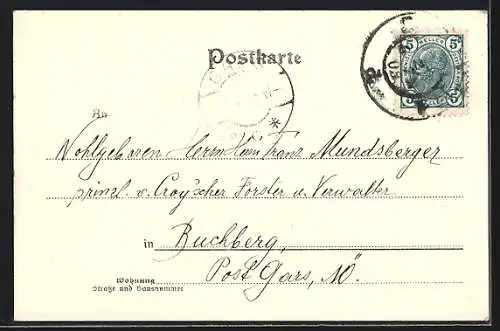 Postkarte
5 HELLER 5
An
Wohlgeboren Herrn Franz Mundsberger
prinzl. v. Croy'scher Förster u. Verwalter
in Buchberg,
Post Gars, NÖ.
Wohnung
Straße und Hausnummer